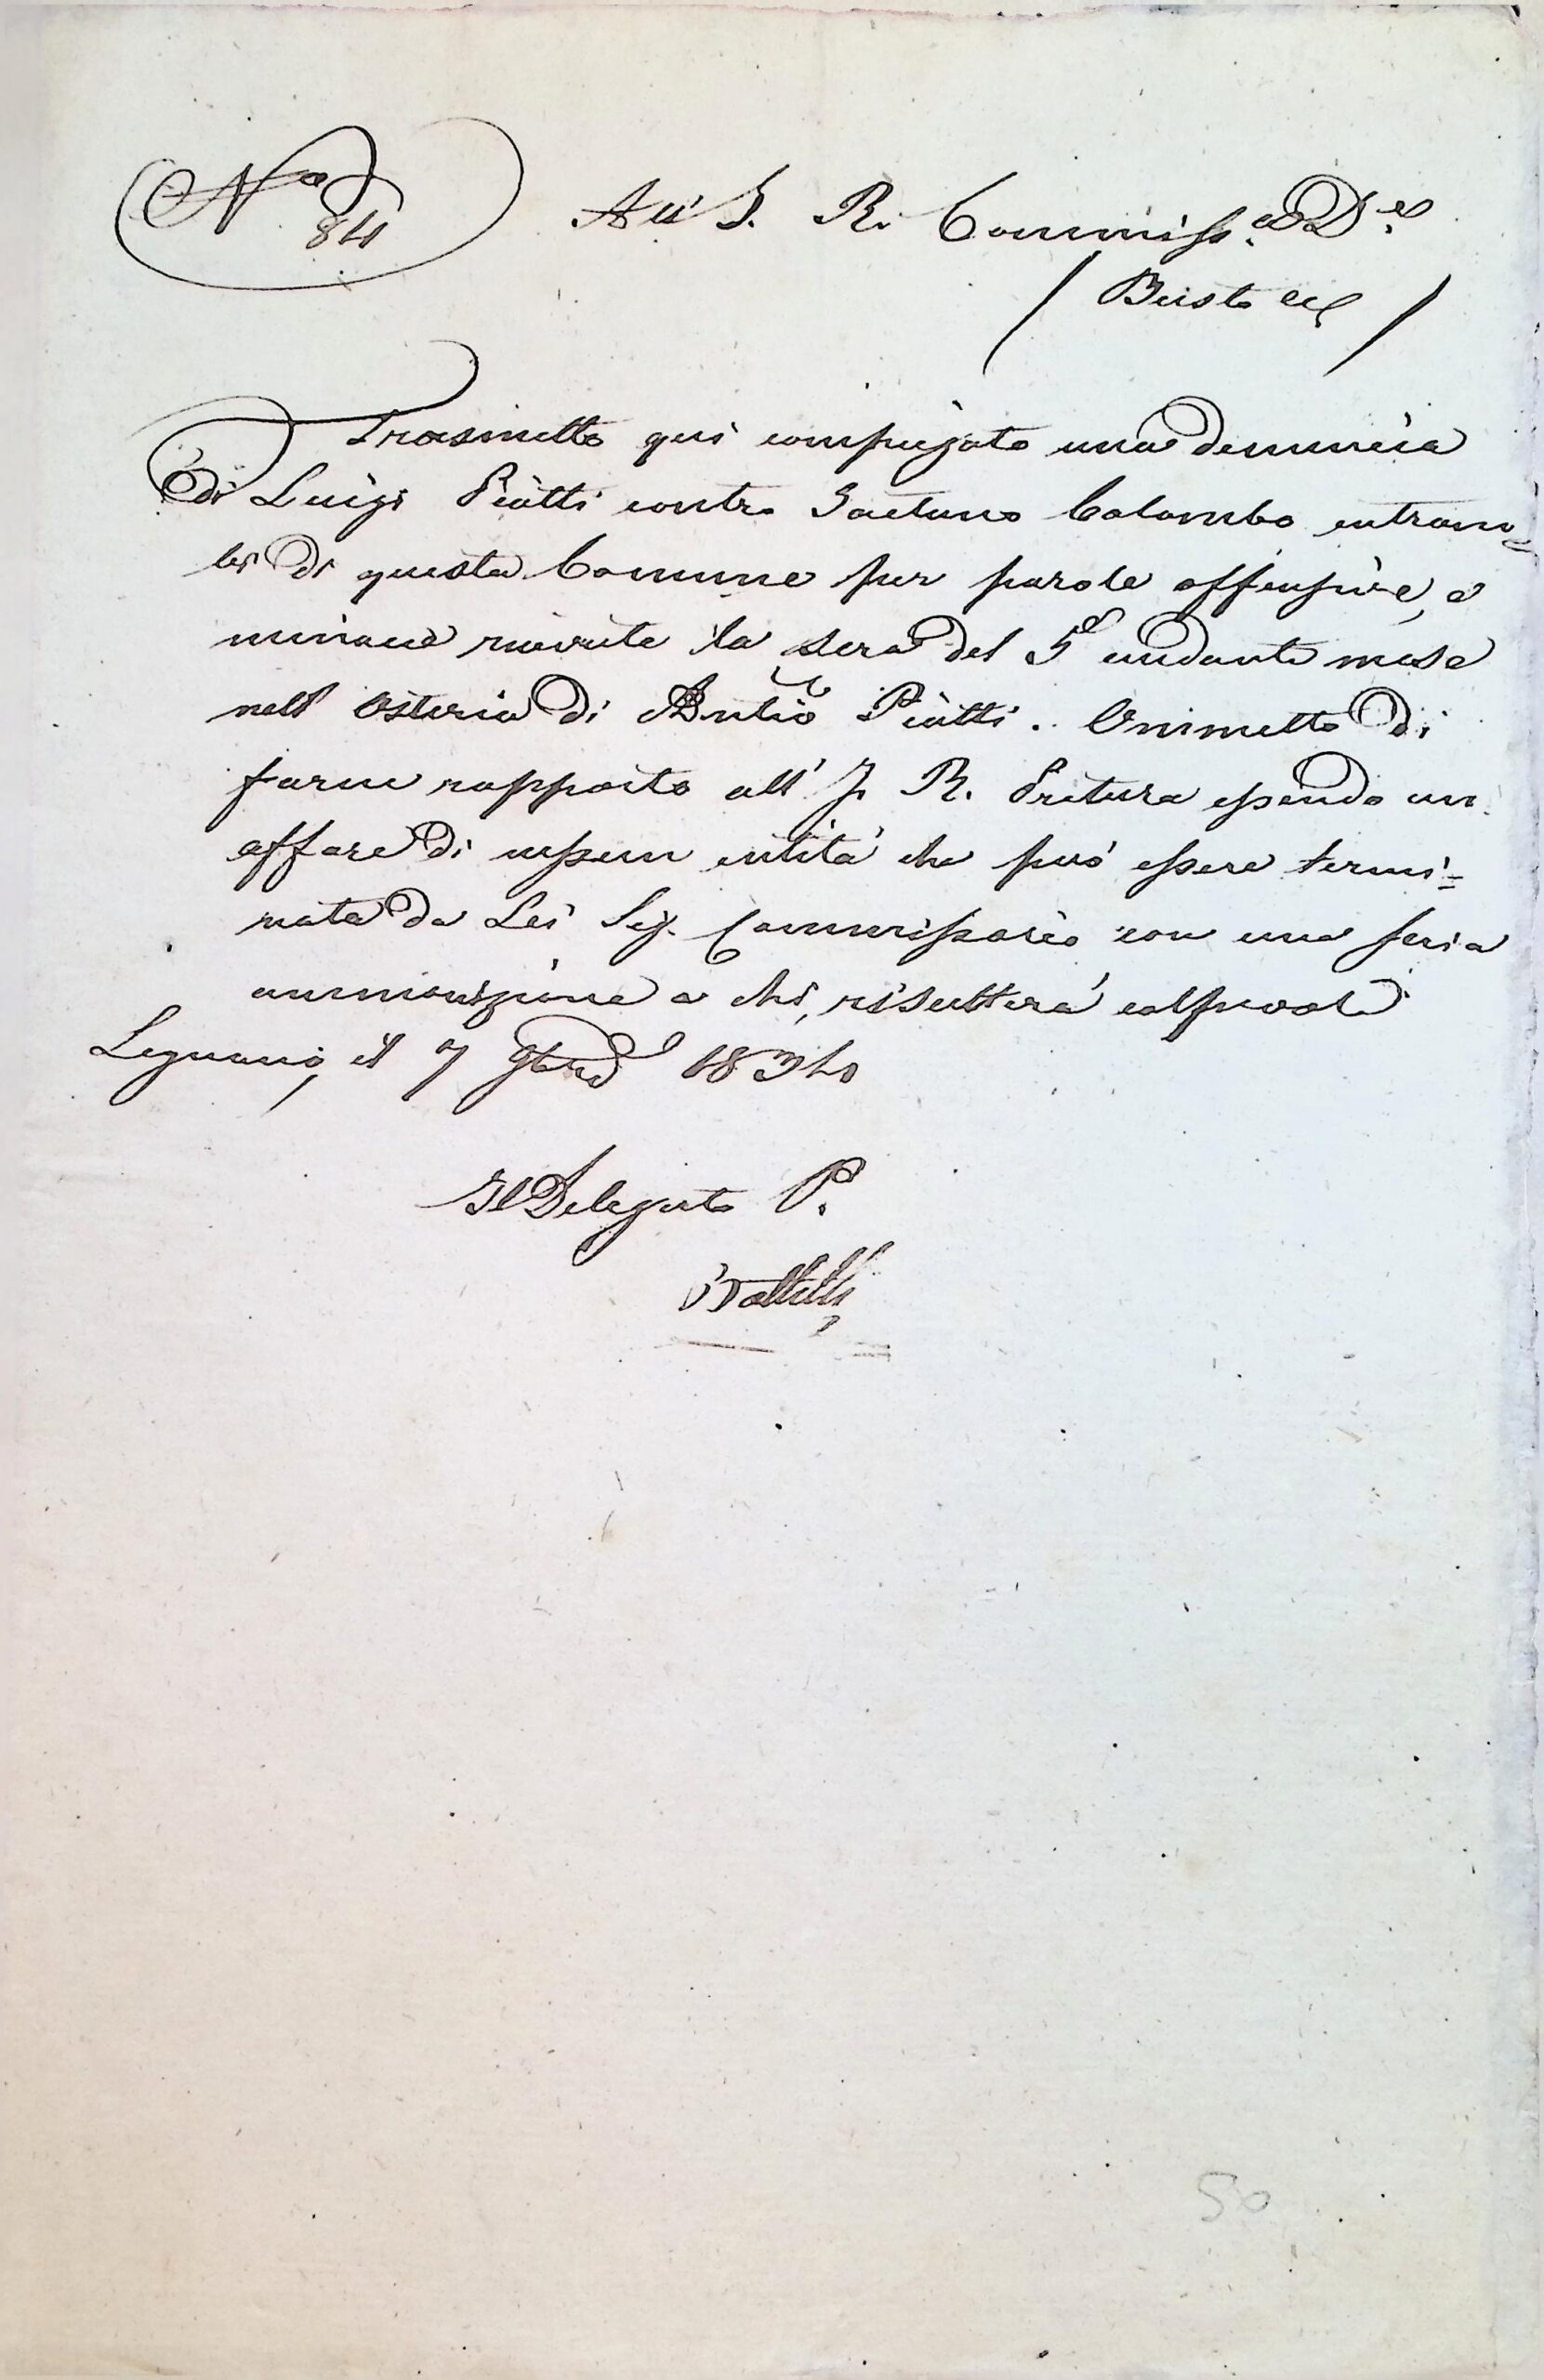 N.o 84
All' I. R. Commiss.o D.le
/ Busto /
Trasmetto qui compiegato una denuncia
di Luigi Piatti contro Gaetano Colombo entram=
bi di questa Comune per parole offensive, e
minacie ricevute la sera del 5 andante mese
nell' Osteria di Antio Piatti. Ommetto di
farne rapporto all' I. R. Pretura essendo un
affare di nessun entità che può essere termi=
nata da Lei Sig. Commissario con una seria
ammonizione a chi, risulterà colpevole
Legnano, il 7 9bre 1834
Il Delegato P.
50